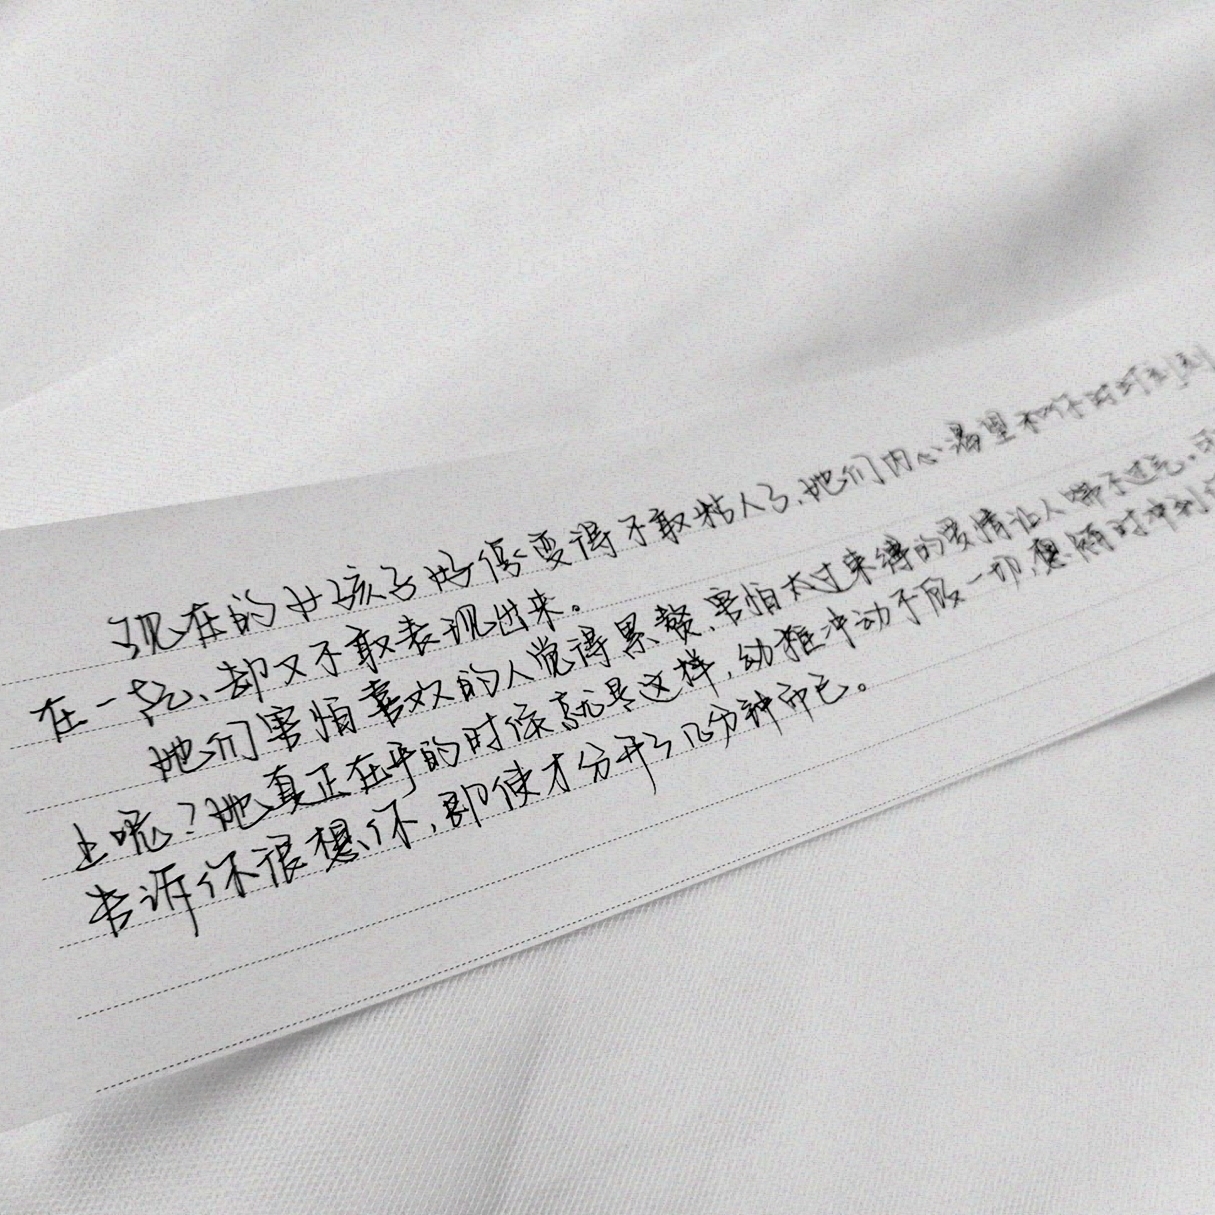 现在的女孩子好像变得不敢粘人了、她们内心渴望和你时时刻刻
在一起、却又不敢表现出来。
她们害怕喜欢的人觉得累赘、害怕太过束缚的爱情让人喘不过气。可
上呢？她真正在乎的时候就是这样，幼稚冲动不顾一切，想随时冲到你
告诉你很想你，即使才分开了几分钟而已。